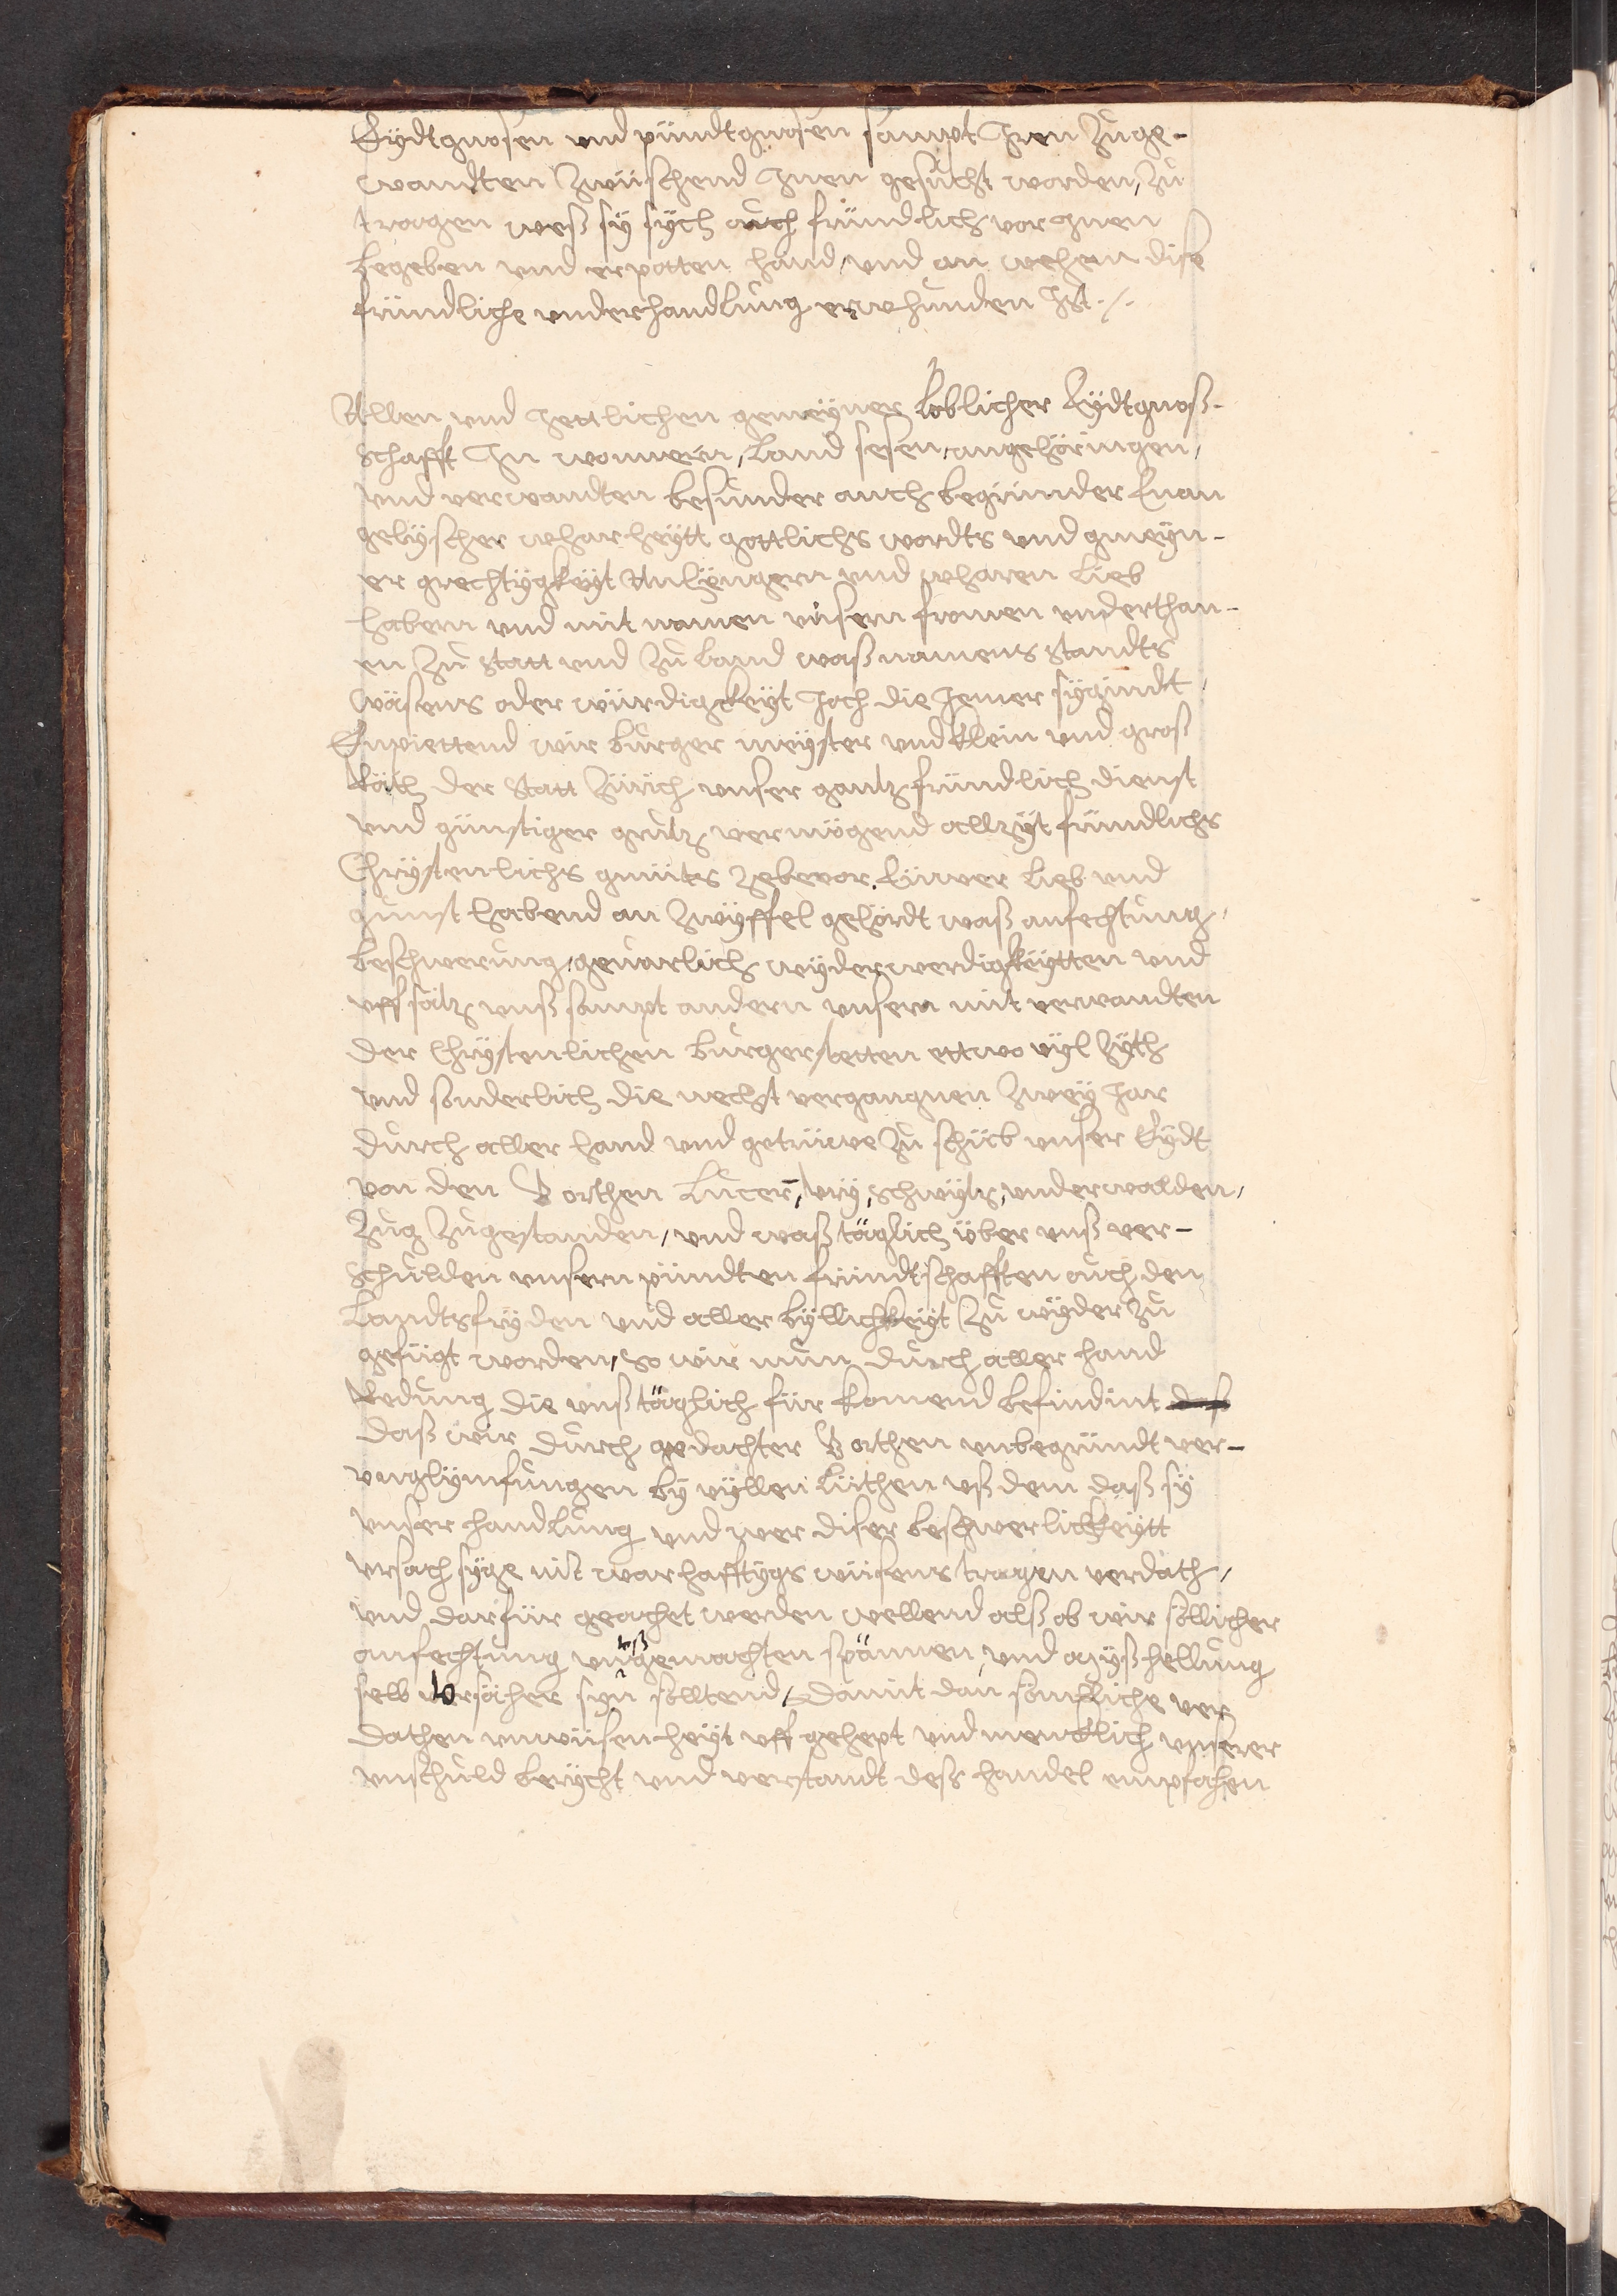 Eydtgnosen vnd pündtgnosen sampt Jren Zuge-
wandten Zwüschend Jnen gesucht worden, Zu
tragen weß sy sych auch fründlich vor Jnen
begeben vnd erpotten hand, vnd an wehem dise
fründliche vnderhandlung erwhunden Jst ./.
Allen vnd Jettlichen gemeyner Loblicher Eydtgnoß-
schafft Jn wonnern, Land sesen, angehöringen,
vnd verwandten besunder auch begirinder Euan
gelyscher wharheytt gottlichs wordts vnd gmeyn-
er grechtygkeyt Anhengern vnd wharen Lieb
habern vnd mit namen vnsern fromen vnderthan-
en Zu Statt vnd Zu Land waß namens standts
wäsens oder würdigkeyt Joch die Jemer sygindt,
Enpiettend wir Burger meyster vnd Klein vnd groß
Räth der Statt Zürich vnser gantz fründlich dienst
vnd günstiger grutz vermögend allzyt fründlichs
Chrystenlichs gmüts zebevor. Eüwer Lieb vnd
gunst habend an Zwyffel gehördt waß anfechtung,
beschwerung, geuarlich wyderwerdigkeytten vnd
vffsätz vnß sampt andern vnsern mit verwandten
der Chrystenlichen Burgerstetten ettwo vyl Zyth
vnd sonderlich die nechst vergangnen Zwey Jar
durch aller hand vnd getrüwe Zu schüb vnser Eydt
von den V orthen Lucer̄, Vry, Schwytz, vnderwalden,
Zug Zugestanden, vnd waß täglich über vnß ver-
schulden vnsern pündten fründtschafften auch den
Landtsfryden vnd aller byllichkeyt Zu wyder Zu
gefügt worden, So wir nun durch aller hand
Redung die vnß täglich für komend befindint
daß wir durch gedachter V orthen vnbegründt ver-
vnglymfungen by vyllen Lüthen vß dem daß sy
vnser handlung vnd wer diser beschwerlickeytt
vrsach syge nit warhafftygs wüsens tragen verdäch,
vnd darfür geachet werden wellend alß ob wir söllicher
anfechtung vffgemachten spännen, vnd myßhellung
selb vrsächer syn solltend, Damit dan sömliche ver
dathen vnwüsenheyt vff gehept vnd mencklich vnserer
vnschuld berycht vnd verstandt deß handel empfachen